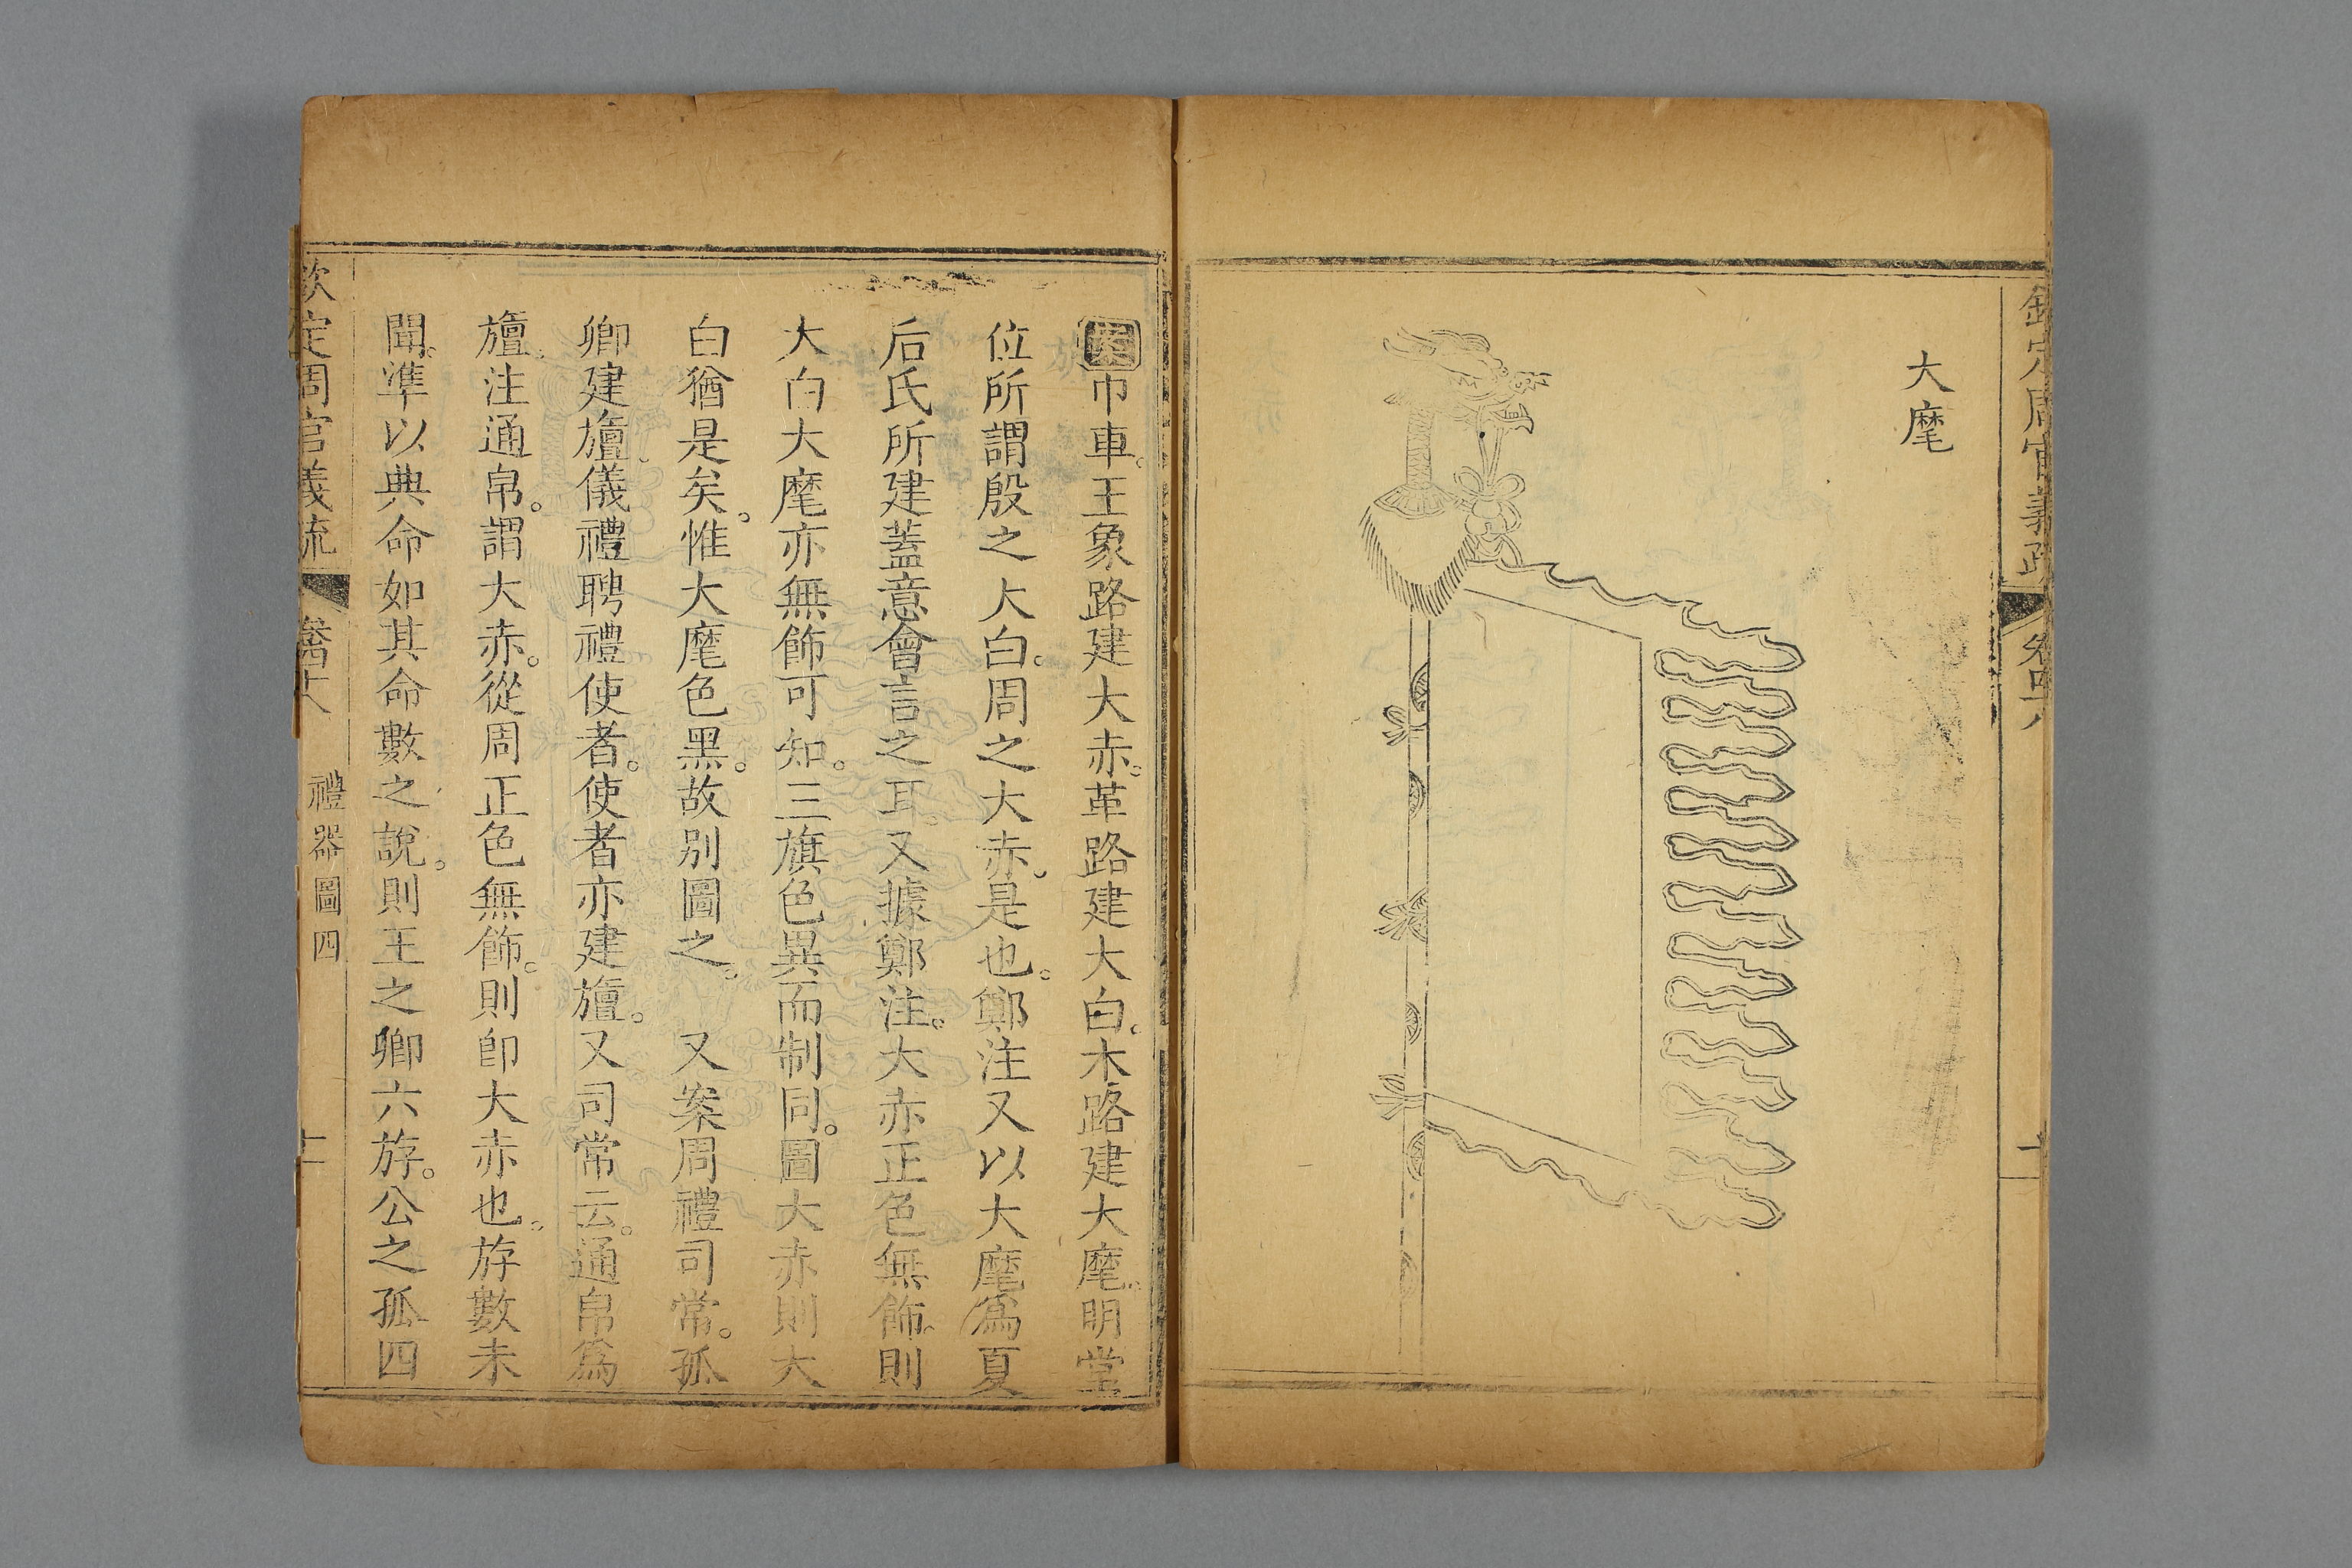 欽定周官義疏
大麾
案巾車。王象路建大赤。革路建大白。木路建大麾。明堂
位所謂殷之大白。周之大赤。是也。鄭注又以大麾爲夏
后氏所建蓋意會言之耳。又據鄭注。大赤正色無飾。則
大白大麾亦無飾可知。三旗色異而制同。圖大赤則大
白猶是矣。惟大麾色黑。故別圖之。 又案周禮司常。孤
卿建旜。儀禮聘禮使者。使者亦建旜。又司常云。通帛爲
旜。注通帛。謂大赤。從周正色無飾。則卽大赤也。斿數未
聞。準以典命如其命數之說。則王之卿六斿。公之孤四
欽定周官義疏 禮器圖四